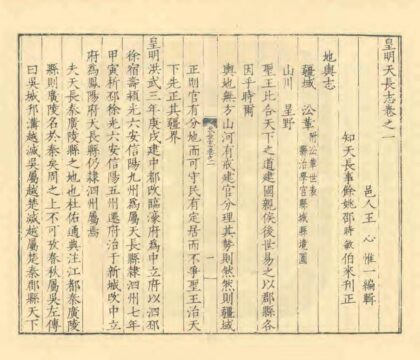 皇明天長志卷之一
邑人王心惟一編輯
知天長事餘姚邵時敏伯來刊正
地輿志
疆域 沿革 附沿革世表
縣治學宮縣城縣境圖
山川 星野
聖王此合天下之道建國親侯後世易之以郡縣各
因乎時爾
輿地無方山河有戒建官分理其勢則然然則疆域
正則官有分地而可守民有定居而不爭聖王治天
下先正其疆界
皇明洪武三年庚戌建中都改臨濠府為中立府以泗邳
徐宿壽潁光六安信陽九州為屬天長縣隸泗州七年
甲寅析邳徐光六安信陽五州遷府治于新城改中立
府為鳳陽府天長縣仍隸泗州屬焉
夫天長秦廣陵縣之地也杜佑通典注江都秦廣陵
縣則廣陵名於秦矣周之上不可攷春秋屬吳左傳
曰吳城邗溝越滅吳屬越楚滅越屬楚秦郡縣天下